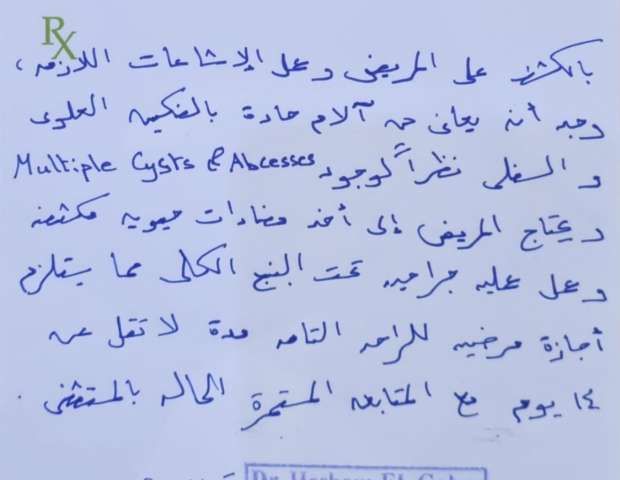 Rx
بالكشف على المريض وعمل الإشاعات اللازمه،
وجد أنه يعانى من آلام حادة بالفكين العلوى
والسفلى نظراً لوجود Multiple Cysts & Abcesses
ويحتاج المريض إلى أخذ مضادات حيويه مكثفه
وعمل عمليه جراحيه تحت البنج الكلى مما يستلزم
أجازة مرضيه للراحه التامه مدة لا تقل عن
١٤ يوم مع المتابعه المستمرة للحاله بالمستشفى.
Dr. Hesham El-